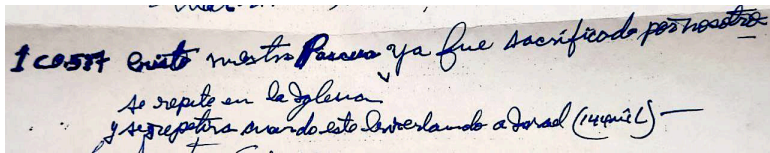 1 Co 5:7 Cristo nuestra Pascua ya fue sacrificado por nosotros
se repite en la Iglesia
y se repetira cuando este levantando a Israel (144 mil) —